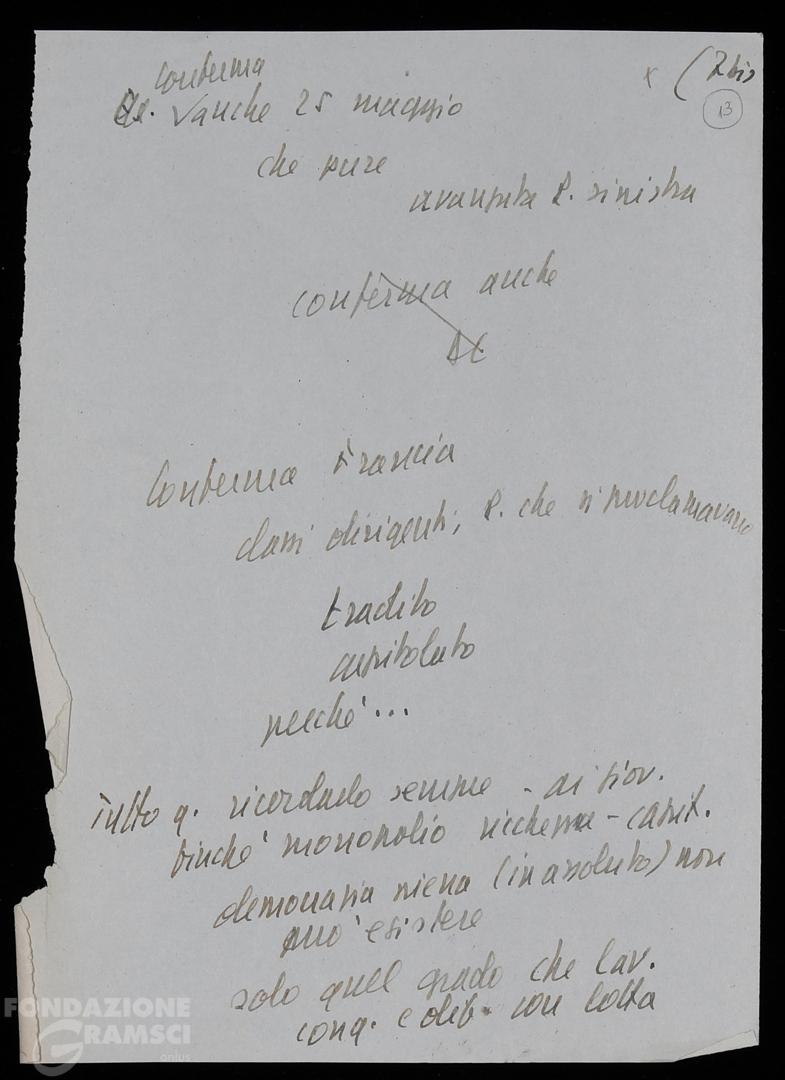 conferma
√ anche 25 maggio
x (2 bis
13
che pure
avanzata P. sinistra
conferma anche
DC
Conferma Francia
classi dirigenti, P. che si proclamavano
tradito
capitolato
perché...
Tutto q. ricordarlo sempre - ai giov.
finché monopolio ricchezza - capit.
democrazia piena (in assoluto) non
può esistere
solo quel grado che lav.
conq. e dif. con lotta
FONDAZIONE
GRAMSCI
onlus